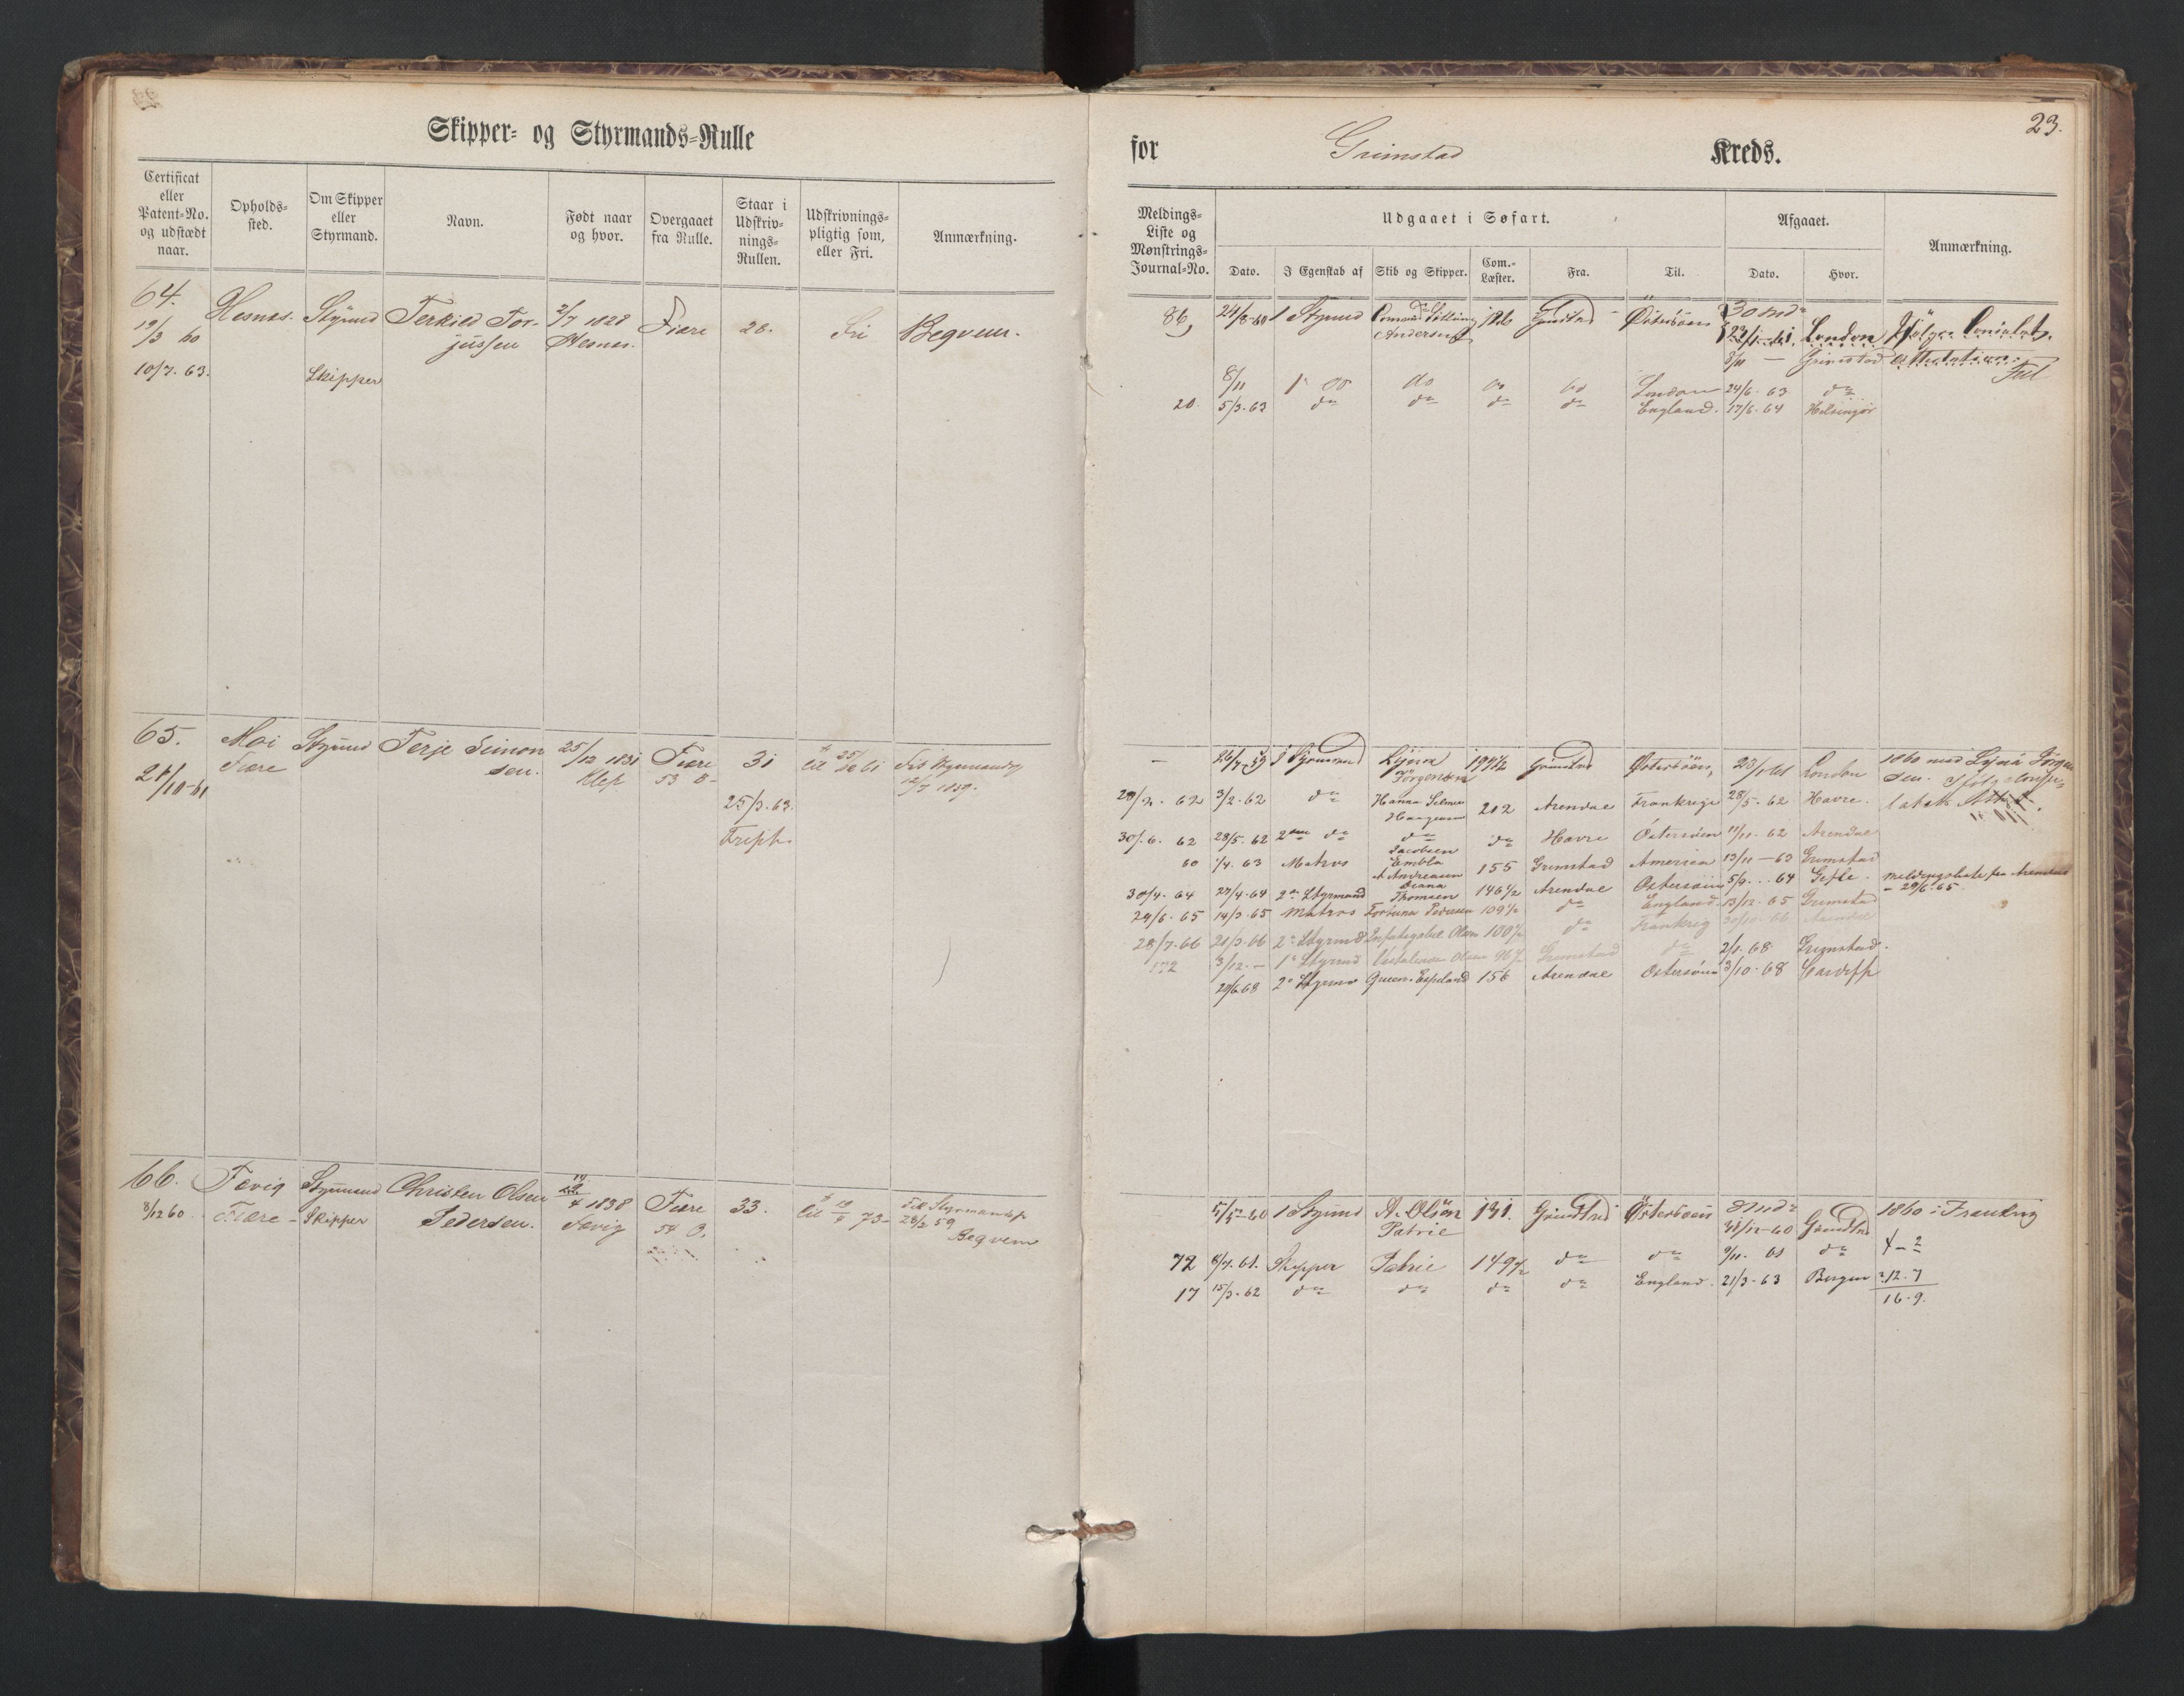 Skipper- og Styrmands-Rulle
Certificat eller Patent-No. og udstædt naar.
Opholds-sted.
Om Skipper eller Styrmand.
Navn.
Født naar og hvor.
Overgaaet fra Rulle.
Staar i Udskriv-nings-Rullen.
Udskrivnings-pligtig som, eller Fri.
Anmærkning.
64.
19/3 60
10/7. 63.
Hesnæs.
Styrmd
Skipper
Terkild Tor-
jussen
2/7 1828
Hesnæs.
Fiære
28.
Fri
Begvem.
65.
21/10-61
Moi
Fiære
Styrmd
Terje Simon
sen.
25/12 1831
Klep
Fiære
53 B-
31
25/3. 63.
til 25/12 61
12/7 1859.
66.
8/12 60
Fevig
Fiære -
Styrmand
Skipper
Christen Olsen
Pedersen.
4 1838
Fevig
Fiære
54 B.
33.
til
73-
Til Styrmandsp
28/2 59
Begvem
for Grimstad Kreds.
23.
Meldings-Liste og Mønstrings-Journal-No.
Udgaaet i Søfart.
Dato.
I Egenskab af
Skib og Skipper.
Com.-Læster.
Fra.
Til.
Afgaaet.
Dato.
Hvor.
Anmærkning.
86, 24/8-60 1 Styrmd Andersen Grimstad Østersøen
23/1-61. London Ifølge Consulats
3/11 — Grimstad Attestation.
Feil
8/11 1° do do do do London 24/6. 63 do
20. 5/3. 63 do do do do England. 17/6. 64 Helsingør
— 26/7-59 Styrmand Lÿdia Jörgensen Grimstad Østersøen, 23/1 61 London 1860 med Lydia Jörgen
sen.
28/2. 62 3/2. 62 do Hanna 202 Arendal Frankrige 28/5. 62 Havre.
30/6. 62 28/5. 62 2den do do Jacobsen do Havre Østersøen 11/11. 62 Arendal
60 1/4. 63 Matros Embla A Andreasen 155 Grimstad America 13/11 — 63 Grimstad
30/4. 64 27/4. 64 2den Styrmand Diana Thomsen 146 1/2 Arendal Østersøen 5/9... 64 Gefle. Meldingsliste fra Arendal
- 29/6. 65.
29/6. 65 14/3. 65 Matros Fortuna Pedersen 109 1/2 do England. 13/12. 65 Grimstad
28/7. 66 21/3. 66 2° Styrmd Olsen 100 1/2 do Frankrig 30/10. 66 Arendal
172 3/12. — 1° Styrmd Vestalinden Olsen Grimstad do 2/1. 68. Grimstad.
29/6 68 2° Styrmd Queen. Espeland 156 Arendal Østersøen 3/10. 68 Cardiff
60 1 Styrmd A. Olsen Patrie 131. Grimstad Østersøen
60 Grimstad
1860 i Frankrig
4 - 2
72 8/7. 61. Skipper Patrie 149 1/2 do do 9/11. 61 do
12. 7
17 15/3. 62 do do do do England. 21/3. 63 Bergen
16. 9.